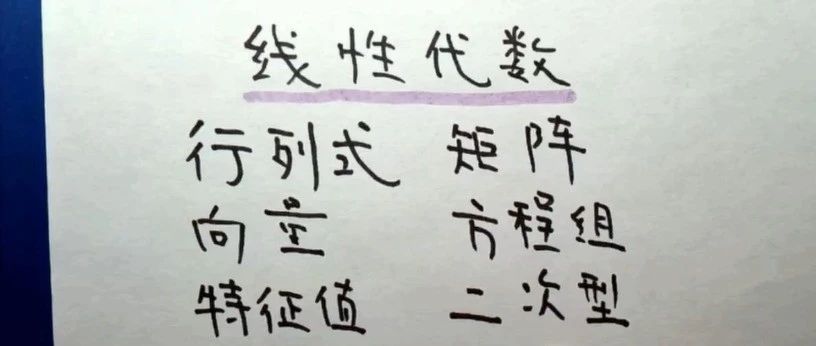 线性代数
行列式 矩阵
向量 方程组
特征值 二次型